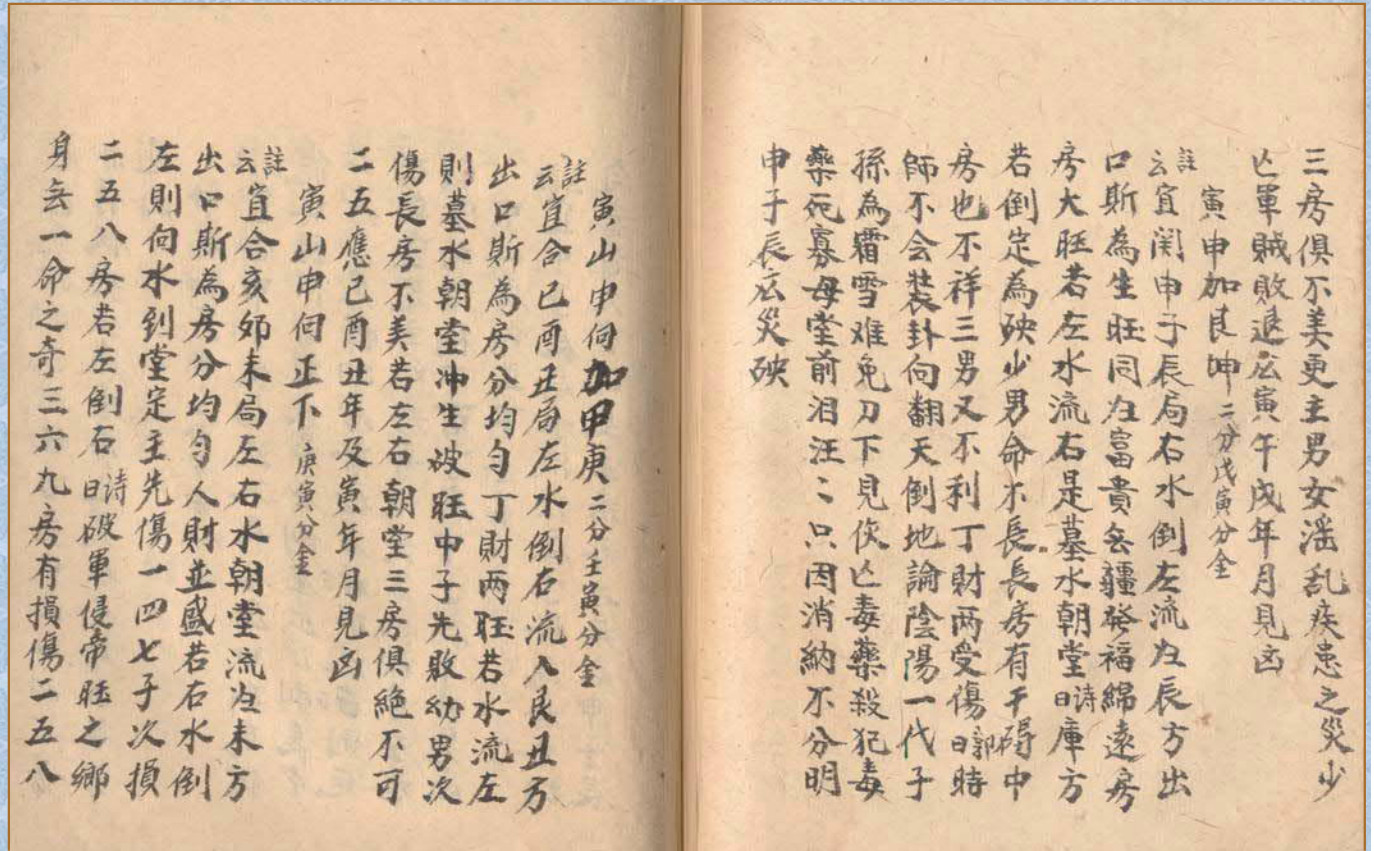 三房俱不美更主男女滛乱疾患之災少
亡軍賊敗退応寅午戌年月見凶
寅申加艮坤二分戊寅分金
註云宜関申子辰局右水倒左流為辰方出
口斯為生旺同為富貴無疆發福綿遠房
房大旺若左水流右是墓水朝堂詩曰庫方
若倒定為殃少男命不長長房有干碍中
房也不祥三男又不利丁財両受傷郭曰時
師不会裝卦向翻天倒地論陰陽一代子
孫為霜雪难免刀下見伏亡毒藥殺犯毒
藥死寡母堂前泪汪〻只因消納不分明
申子辰応災殃
寅山申向加甲庚二分壬寅分金
註云宜合巳酉丑局左水倒右流入艮丑方
出口斯為房分均勻丁財两旺若水流左
則墓水朝堂冲生破旺中子先敗幼男次
傷長房不美若左右朝堂三房俱絶不可
二五應巳酉丑年及寅年月見凶
寅山申向正下庚寅分金
註云宜合亥夘未局左右水朝堂流為未方
出口斯為房分均勻人財並盛若右水倒
左則向水到堂定主先傷一四七子次損
二五八房若左倒右詩曰破軍侵帝旺之鄉
身无一命之奇三六九房有損傷二五八